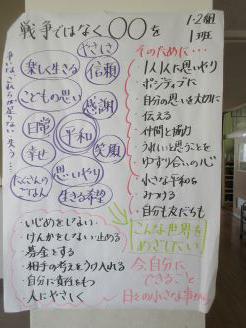 戦争ではなく〇〇を
1・2組
1班
やさしさ
楽しく生きる
信頼
こどもの思い
感謝
日常
平和
笑顔
幸せ
思いやり
たくさんのごはん
生きる希望
そのために…
・1人1人に思いやり
・ポジティブに
・自分の思いを大切に
伝える
・仲間と協力
・うれしいと思うことを
・ゆずり合いの心
・小さな平和を
みつける
・自分も友だちも
・いじめをしない
・けんかをしない・止める
・募金をする
・相手の考えをうけ入れる
・自分に責任をもつ
・人にやさしく
こんな世界を
めざしたい
今、自分に
できること
日々の小さな事から